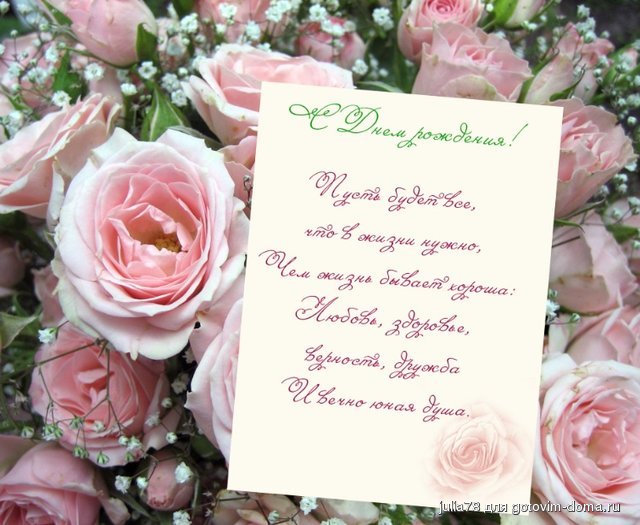 С Днем рождения!
Пусть будет все,
что в жизни нужно,
Чем жизнь бывает хороша:
Любовь, здоровье,
верность, дружба
И вечно юная душа.
julia78 для gotovim-doma.ru